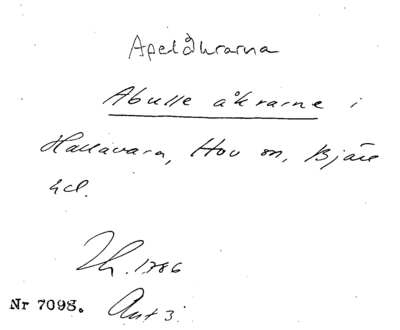 Apelåkrarna
Abulle åkrarne i
Hallavara, Hov sn, Bjäre
hd.
Lh. 1786
Nr 7098. Akt 3.